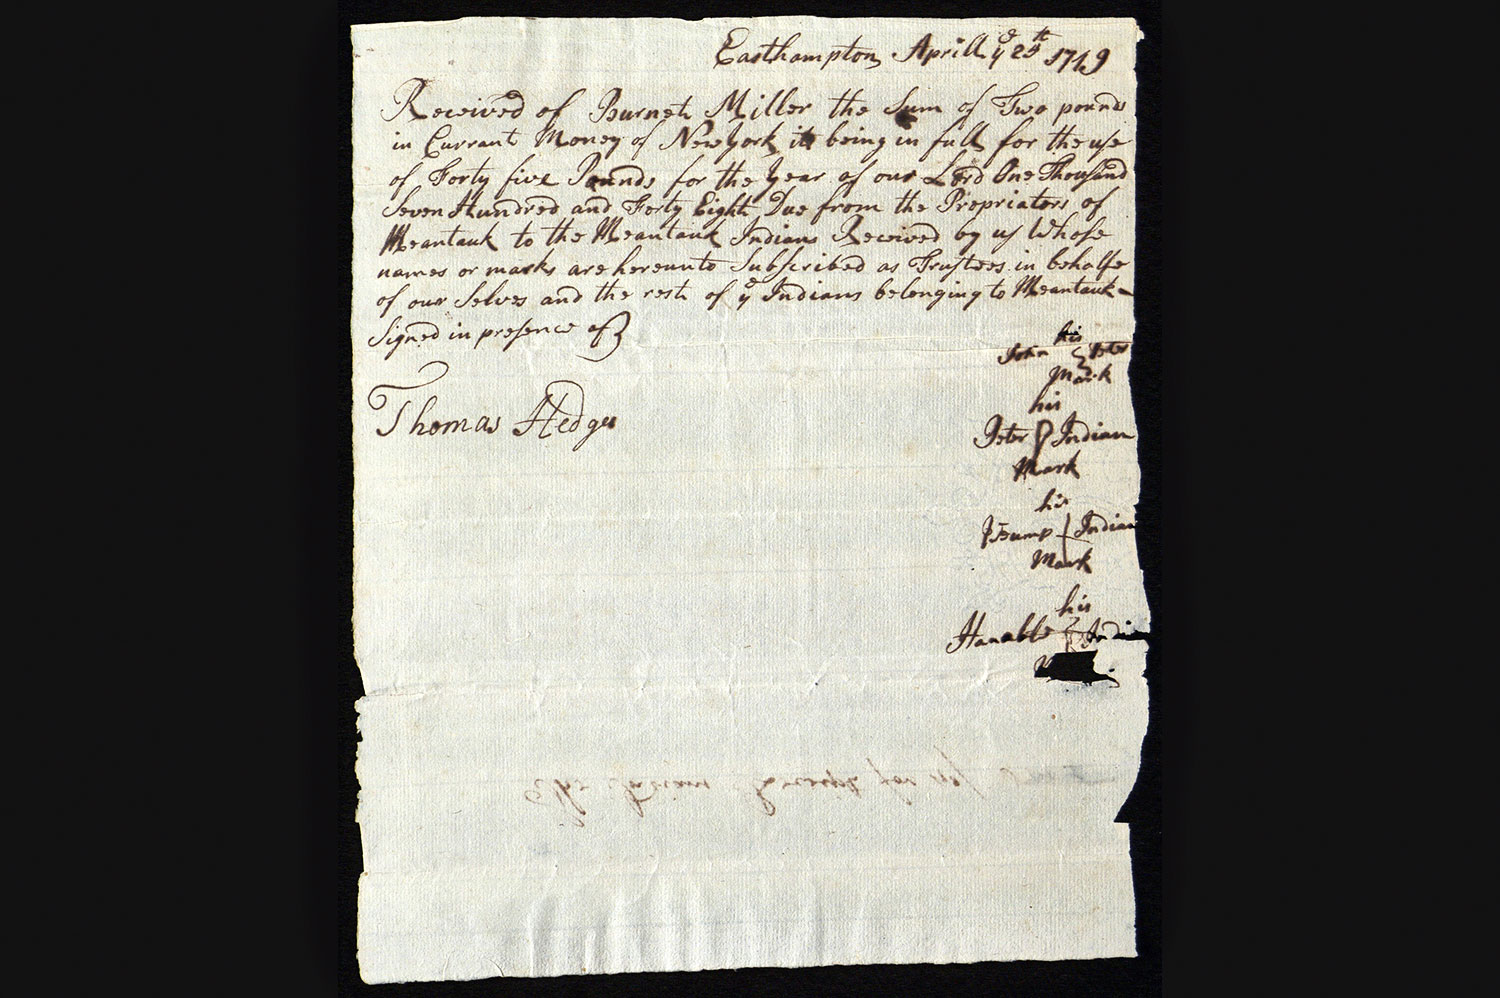 Easthampton Aprill yᵉ 25ᵗʰ 1749
Received of Burnet Miller the Sum of Two pounds
in Currant Money of New York it being in full for the use
of Forty five Pounds for the year of our Lord One Thousand
Seven Hundred and Forty Eight Due from the Propriators of
Meantauk to the Meantauk Indians Received by us Whose
names or marks are hereunto Subscribed as Trustees in behalfe
of our Selves and the rest of yᵉ Indians belonging to Meantauk
Signed in presence of
his
John Peter
Mark
Thomas Hedges
his
Peter Indian
Mark
his
Indian
Mark
his
Hanable Indian
The Indians for